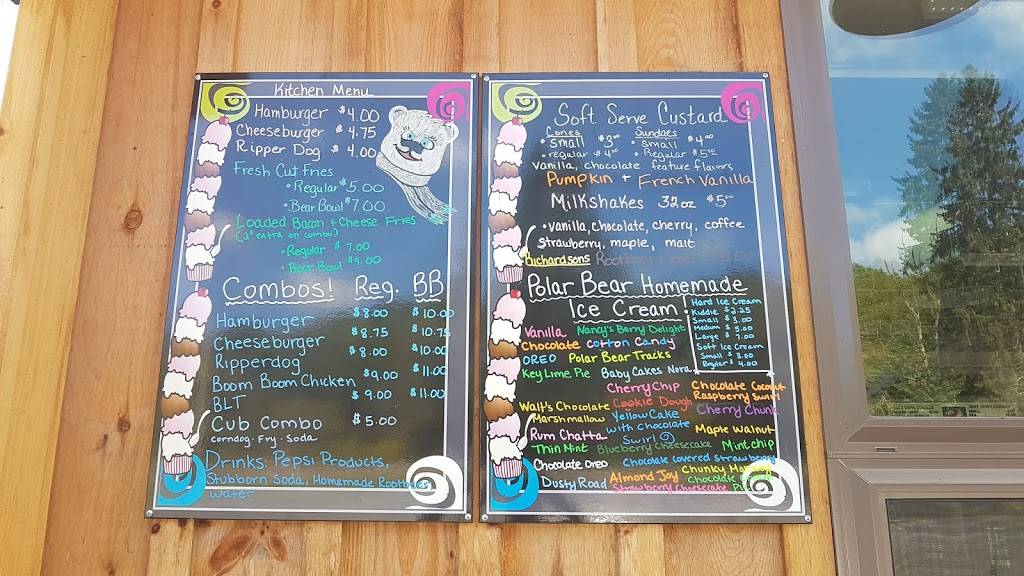 Kitchen Menu
Hamburger $4.00
Cheeseburger $4.75
Ripper Dog $4.00
Fresh Cut Fries
• Regular $5.00
• Bear Bowl $7.00
Loaded Bacon + Cheese Fries
(2$ extra on combo)
• Regular $7.00
• Bear Bowl $9.00
Combos! Reg. BB
Hamburger $8.00 $10.00
Cheeseburger $8.75 $10.75
Ripperdog $8.00 $10.00
Boom Boom Chicken $9.00 $11.00
BLT $9.00 $11.00
Cub Combo $5.00
corndog. Fry. Soda
Drinks: Pepsi Products,
Stubborn Soda, Homemade Rootbeer
Water
Soft Serve Custard
Cones Sundaes
• Small $3.00 • Small $4.00
• regular $4.00 • Regular $5.00
Vanilla, chocolate feature flavors
Pumpkin + French Vanilla
Milkshakes 32oz $5.00
• Vanilla, chocolate, cherry, coffee
strawberry, maple, malt
Richardsons Rootbeer
Polar Bear Homemade
Ice Cream
Hard Ice Cream
Kiddie $2.25
Small $3.00
Medium $5.00
Large $7.00
Soft Ice Cream
Small $3.00
Regular $4.00
Vanilla Nancy's Berry Delight
Chocolate Cotton Candy
OREO Polar Bear Tracks
Key Lime Pie Baby Cakes Nora
Cherry Chip Chocolate Coconut
Walt's Chocolate Marshmallow Cookie Dough Raspberry Swirl
Yellow Cake with Chocolate Swirl Cherry Chunk
Rum Chatta Maple Walnut
Thin Mint Blueberry Cheesecake Mint chip
Chocolate Oreo Chocolate covered strawberry
Dusty Road Almond Joy Chunky
Strawberry Cheesecake Chocolate